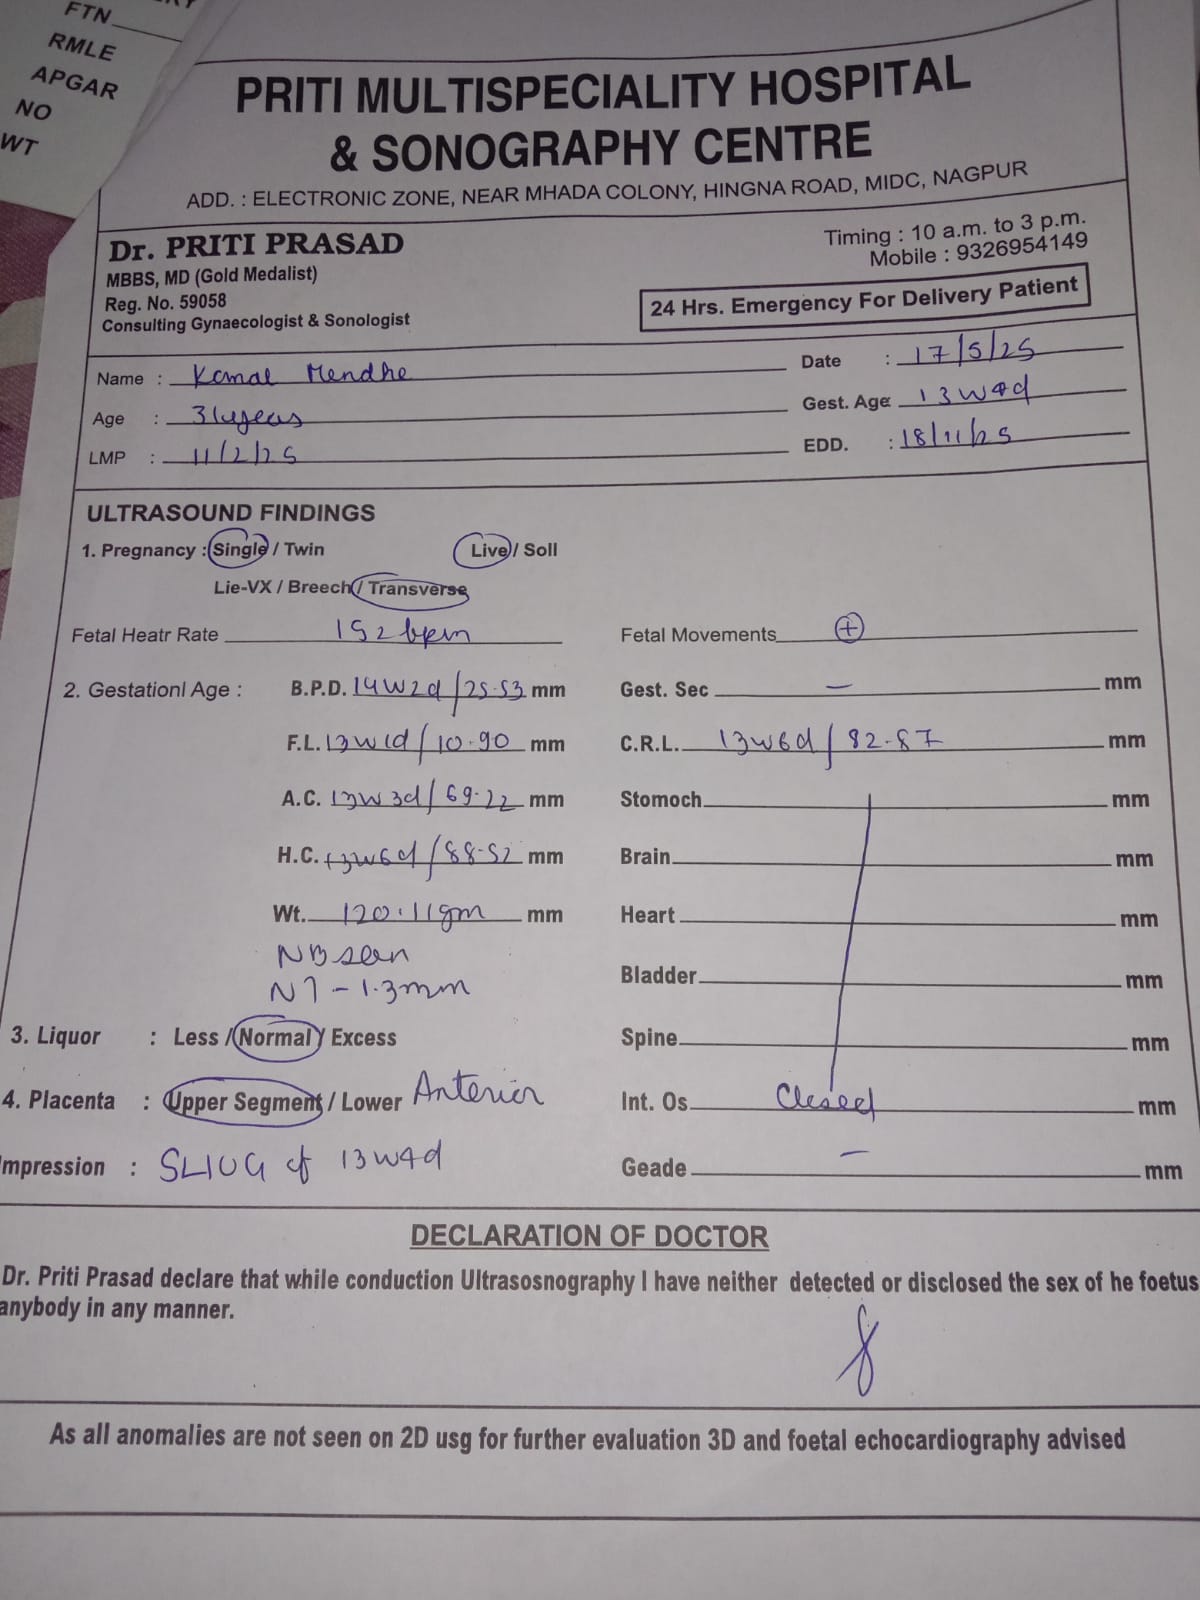 FTN
RMLE
APGAR
NO
WT
PRITI MULTISPECIALITY HOSPITAL
& SONOGRAPHY CENTRE
ADD. : ELECTRONIC ZONE, NEAR MHADA COLONY, HINGNA ROAD, MIDC, NAGPUR
Dr. PRITI PRASAD
MBBS, MD (Gold Medalist)
Reg. No. 59058
Consulting Gynaecologist & Sonologist
Timing : 10 a.m. to 3 p.m.
Mobile : 9326954149
24 Hrs. Emergency For Delivery Patient
Name : Komal Mendhe
Date : 17/5/25
Age : 31years
Gest. Age: 13W4d
LMP : 11/2/25
EDD. : 18/11/25
ULTRASOUND FINDINGS
1. Pregnancy : Single / Twin Live / Soll
Lie-VX / Breech / Transverse
Fetal Heatr Rate 152 bpm Fetal Movements +
2. Gestationl Age : B.P.D. 14W2d / 25.53 mm Gest. Sec — mm
F.L. 13W1d / 10.90 mm C.R.L. 13W6d / 82.87 mm
A.C. 13W3d / 69.22 mm Stomoch mm
H.C. 13W6d / 88.52 mm Brain mm
Wt. 120.11gm mm Heart mm
NB seen
NT - 1.3mm Bladder mm
3. Liquor : Less / Normal / Excess Spine mm
4. Placenta : Upper Segment / Lower Anterior Int. Os Closed mm
Impression : SLIUG of 13W4d Geade — mm
DECLARATION OF DOCTOR
Dr. Priti Prasad declare that while conduction Ultrasosnography I have neither detected or disclosed the sex of he foetus
anybody in any manner.
As all anomalies are not seen on 2D usg for further evaluation 3D and foetal echocardiography advised